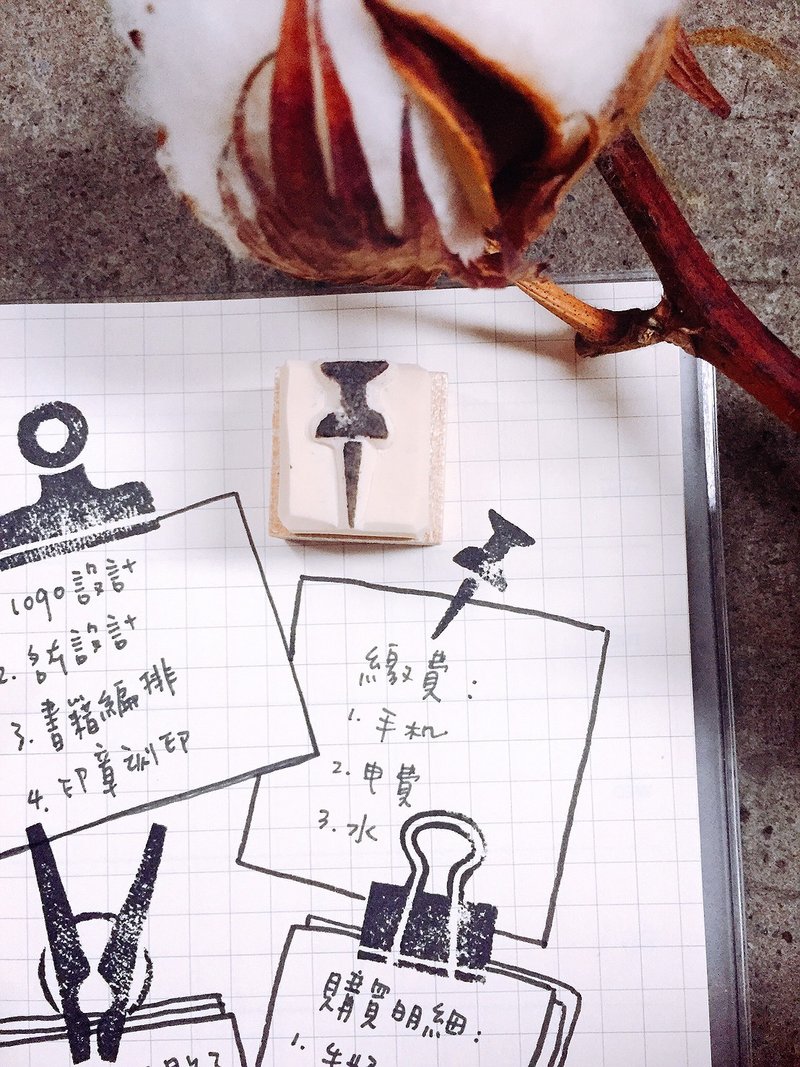 logo設計
2. 名片設計
3. 書籍編排
4. 印章刻印
繳費:
1. 手机
2. 电費
3. 水
購買明細:
1.